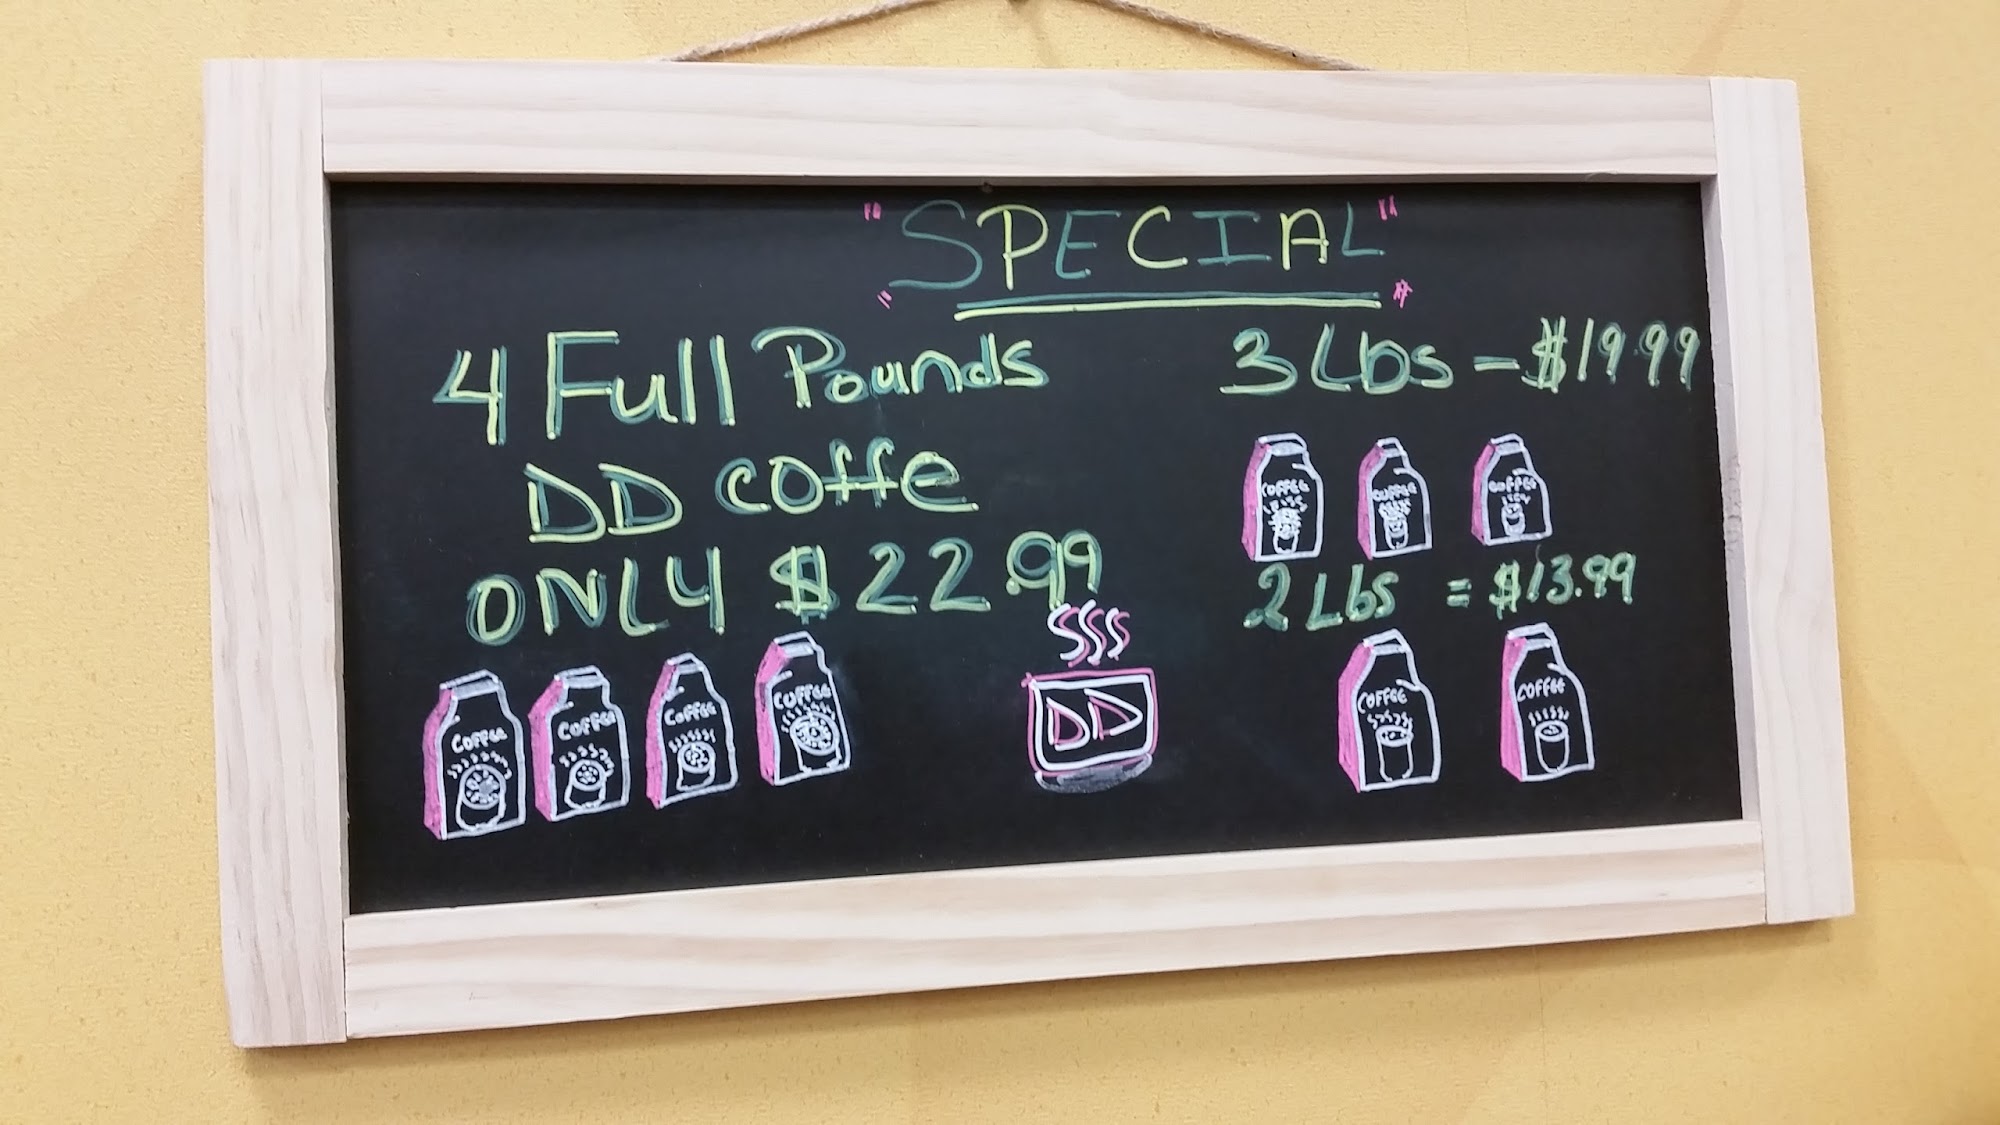 "SPECIAL"
4 Full Pounds
DD coffe
ONLY $22.99
COFFEE COFFEE COFFEE COFFEE
DD
3 Lbs - $19.99
COFFEE COFFEE COFFEE
2 Lbs = $13.99
COFFEE COFFEE